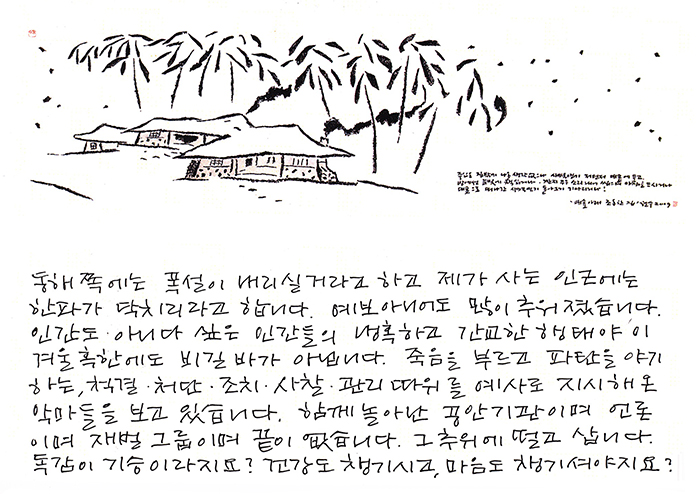 2009
동해 쪽에는 폭설이 내리실거라고 하고 제가 사는 인근에는
한파가 닥치리라고 합니다. 예보아니어도 많이 추워졌습니다.
인간도·아니다 싶은 인간들의 냉혹하고 간교한 행태야 이
겨울혹한에도 비길 바가 아닙니다. 죽음을 부르고 파탄을 야기
하는, 척결·처단·조치·사찰·관리 따위를 예사로 지시해온
악마들을 보고 있습니다. 함께 놀아난 공안기관이며 언론
이며 재벌 그룹이며 끝이 없습니다. 그 추위에 떨고 삽니다.
독감이 기승이라지요? 건강도 챙기시고, 마음도 챙기셔야지요?